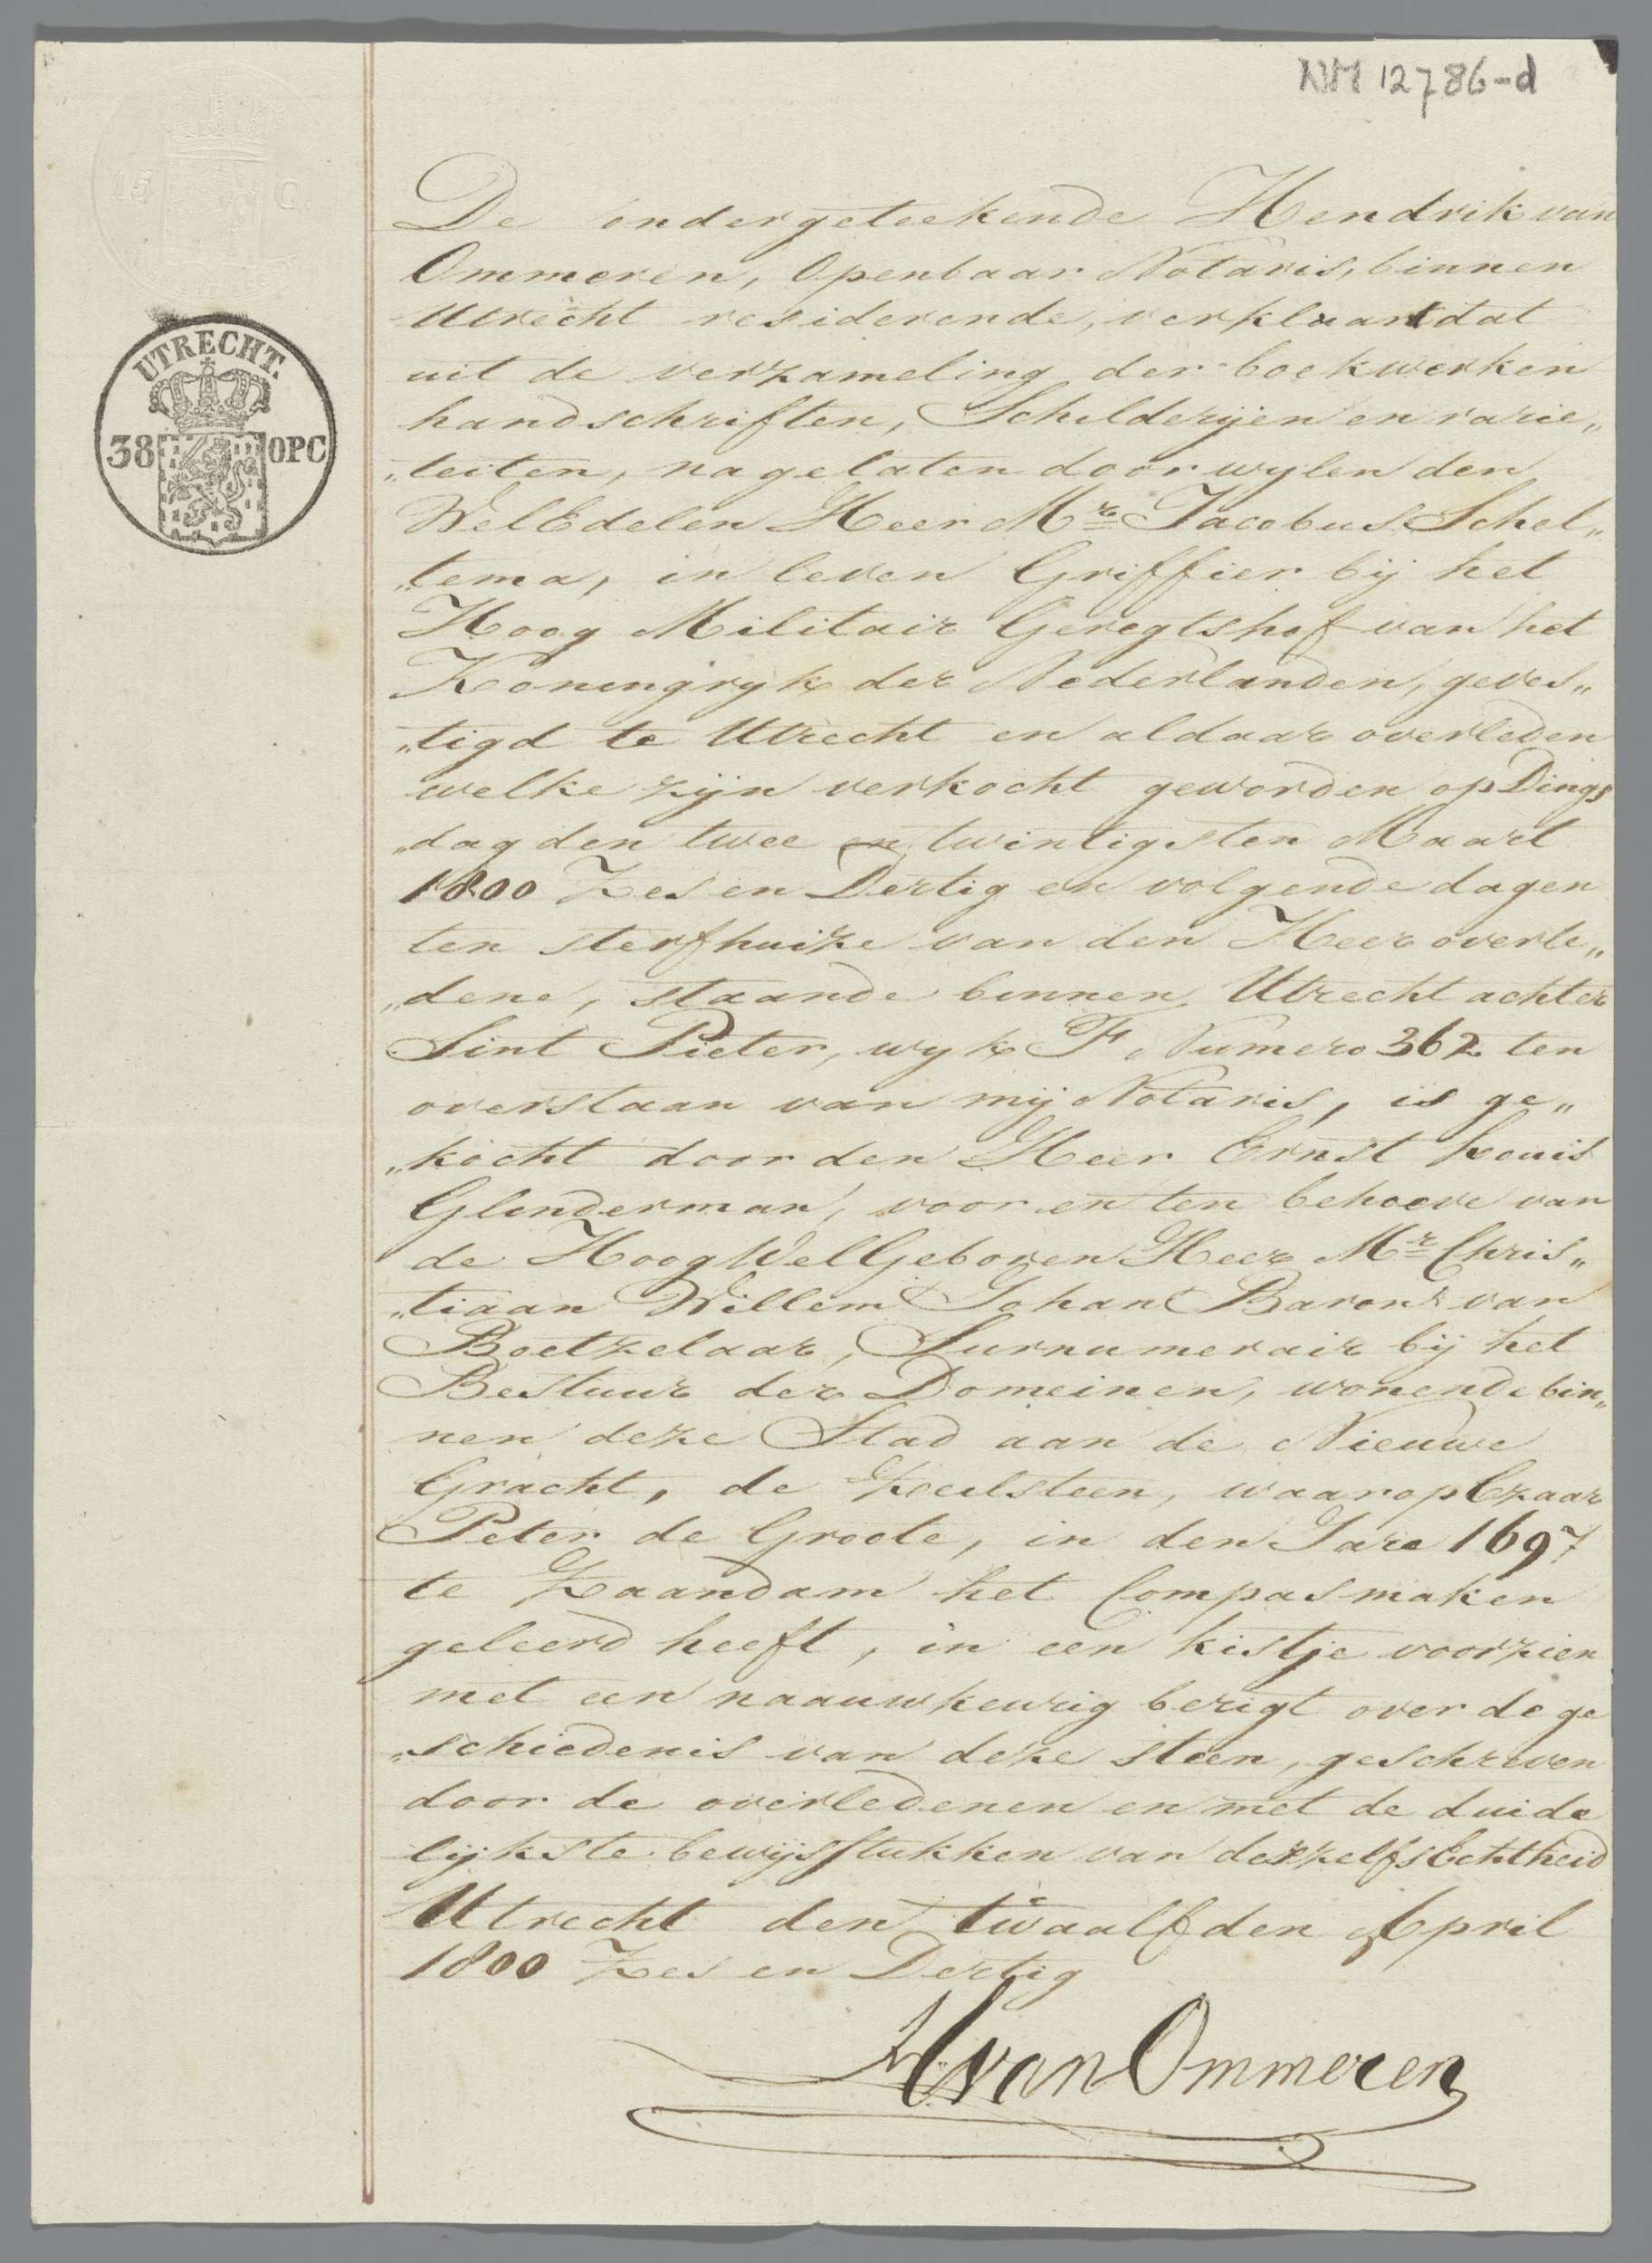 NM 12786-d
De ondergeteekende Hendrik van
Ommeren, Openbaar Notaris, binnen
Utrecht residerende, verklaart dat
uit de verzameling der boekwerken
handschriften, Schilderijen en rarie„
„teiten, nagelaten door wylen den
WelEdelen Heer Mr Jacobus Schel„
„tema, in leven Griffier bij het
Hoog Militair Geregtshof van het
Koningryk der Nederlanden, geves„
„tigd te Utrecht en aldaar overleden
welke zijn verkocht geworden op Dings
„dag den twee en twintigsten Maart
1800 Zes en Dertig en volgende dagen
ten sterfhuize van den Heer overle„
„dene, staande binnen Utrecht achter
Sint Pieter, wyk F, Numero 362 ten
overstaan van mij Notaris, is ge„
„kocht door den Heer Ernst Louis
Glinderman, voor en ten behoeve van
de HoogWelGeboren Heer Mr Chris„
„tiaan Willem Johan Baron van
Boetzelaar, Surnumerair bij het
Bestuur der Domeinen, wonende bin„
nen deze Stad aan de Nieuwe
Gracht, de Zeilsteen, waarop Czaar
Peter de Groote, in den Jare 1697
te Zaandam het Compasmaken
geleerd heeft, in een kistje voorzien
met een naauwkeurig berigt over de ge
„schiedenis van deze steen, geschreven
door de overledenen en met de duide
lijkste bewijsstukken van deszelfs Echtheid
Utrecht den twaalfden April
1800 Zes en Dertig
HvanOmmeren
UTRECHT.
38 OPC
15 C